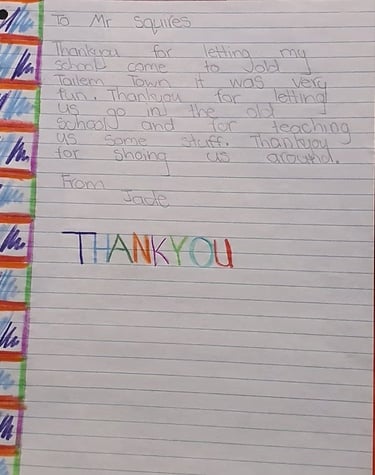 To Mr Squires
Thankyou for letting my
school come to old
Tailem Town it was very
fun. Thankyou for letting
us go in the old
school and for teaching
us some stuff. Thankyou
for shoing us around.
From
Jade
THANKYOU